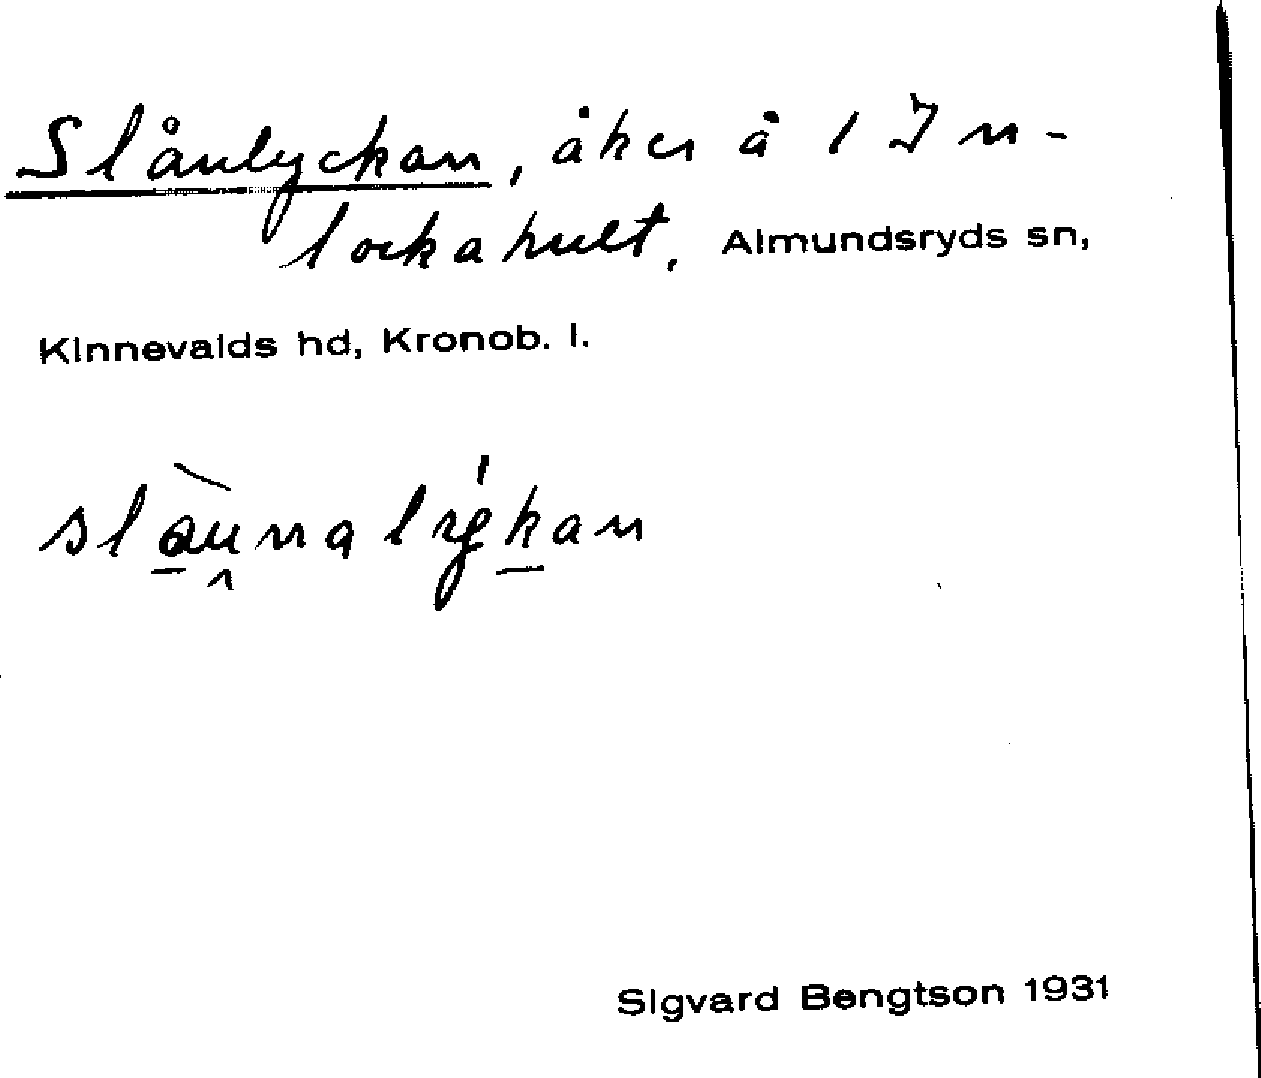 Slånlyckan, åker å 1 In-
lockahult, Almundsryds sn,
Kinnevalds hd, Kronob. l.
Sigvard Bengtson 1931